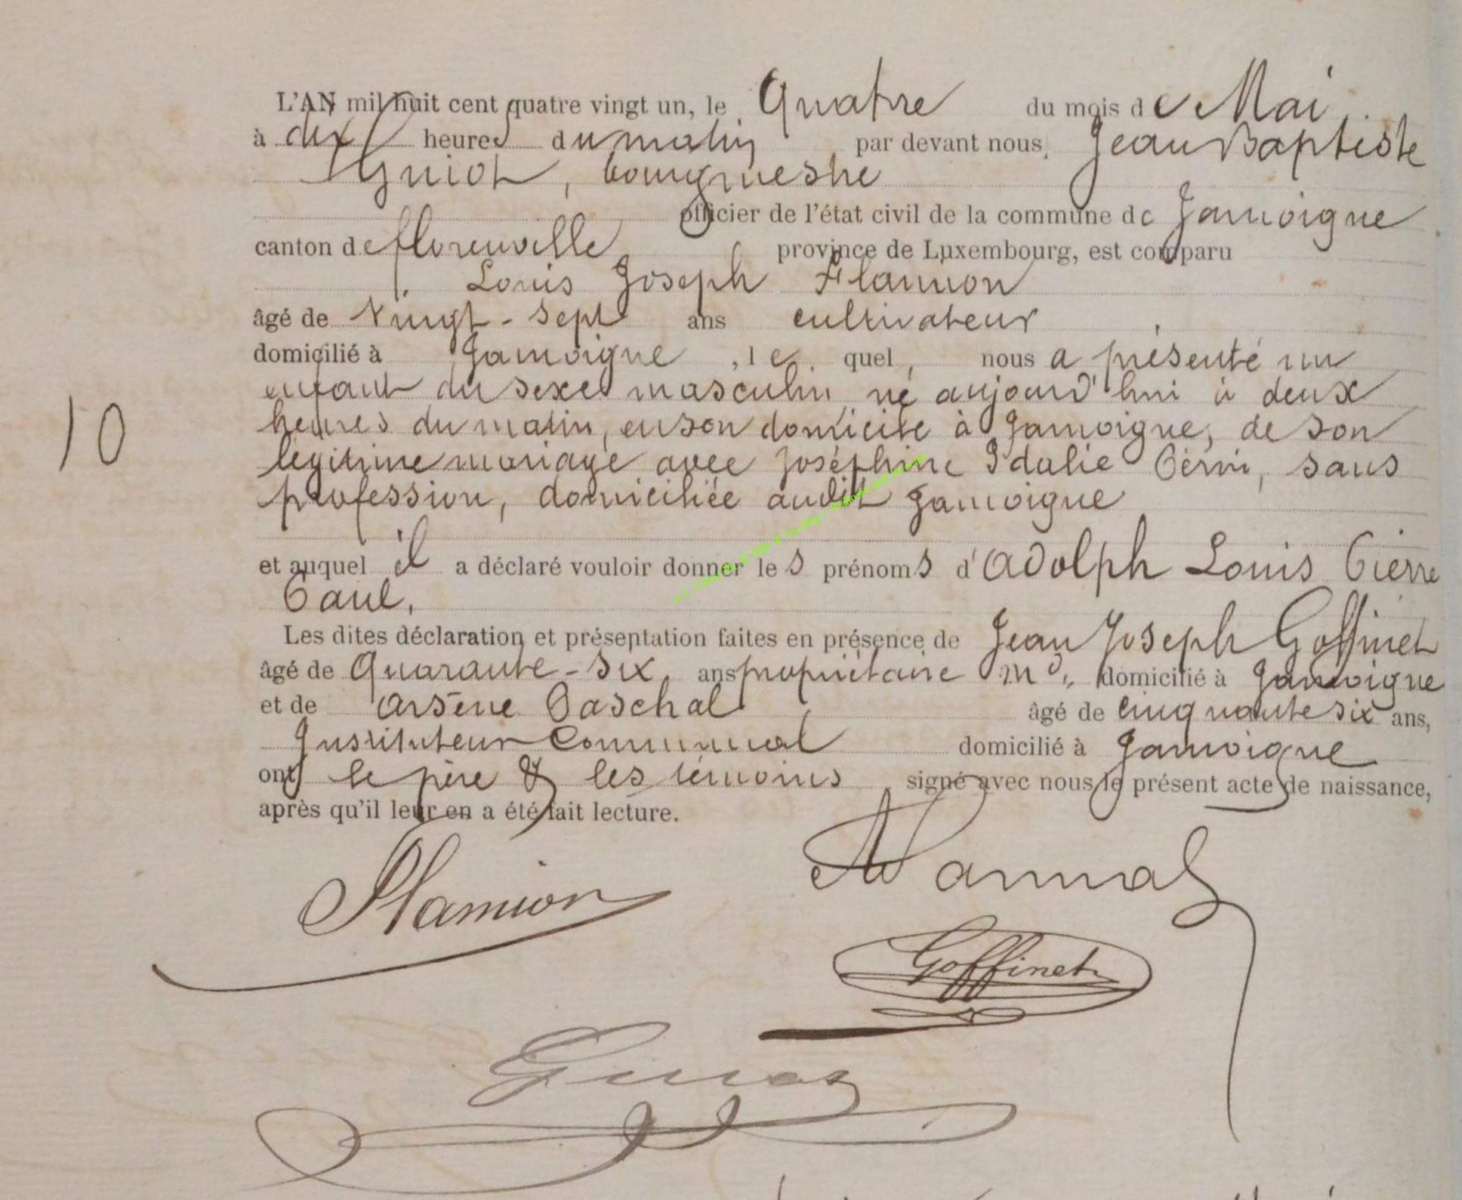 L'AN mil huit cent quatre vingt un, le Quatre du mois de Mai
à dix heures du matin par devant nous, Jean Baptiste
Guiot, bourgmestre
officier de l'état civil de la commune de Jamoigne
canton de florenville province de Luxembourg, est comparu
Louis Joseph Flamion
âgé de Vingt-sept ans cultivateur
domicilié à Jamoigne, lequel, nous a présenté un
enfant du sexe masculin né aujourd'hui à deux
heures du matin, en son domicile à Jamoigne, de son
légitime mariage avec Joséphine Idalie sans
profession, domiciliée audit Jamoigne
10
et auquel il a déclaré vouloir donner les prénoms d'Adolph Louis Pierre
Paul.
Les dites déclaration et présentation faites en présence de Jean Joseph Goffinet
âgé de Quarante-six ans propriétaire domicilié à Jamoigne
et de Arsène Paschal âgé de cinquante six ans,
Instituteur Communal domicilié à Jamoigne
ont le père & les témoins signé avec nous le présent acte de naissance,
après qu'il leur en a été fait lecture.
Flamion
Goffinet
Guiot